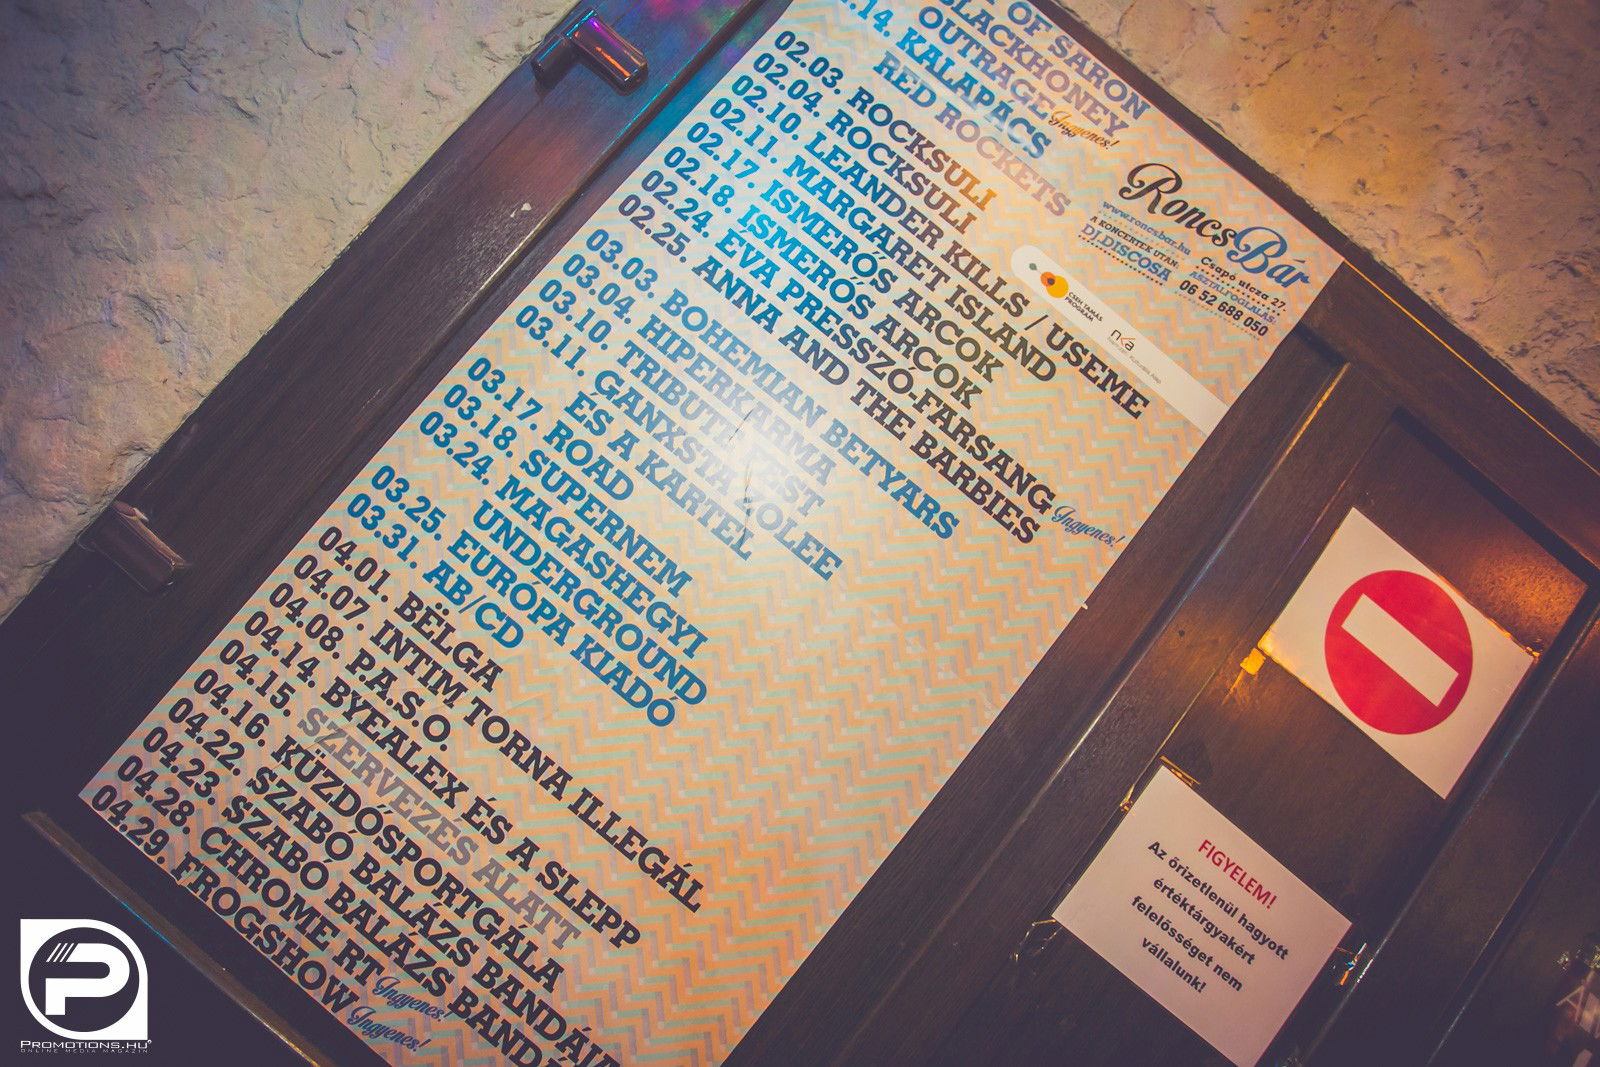 OF SARON
BLACKHONEY
OUTRAGE Ingyenes!
.14. KALAPÁCS
RED ROCKETS
02.03. ROCKSULI
02.04. ROCKSULI
02.10. LEANDER KILLS / USEME
02.11. MARGARET ISLAND
02.17. ISMERŐS ARCOK
02.18. ISMERŐS ARCOK
02.24. ÉVA PRESSZÓ-FARSANG Ingyenes!
02.25. ANNA AND THE BARBIES
03.03. BOHEMIAN BETYARS
03.04. HIPERKARMA
03.10. TRIBUTE FEST
03.11. GANXSTA ZOLEE
ÉS A KARTEL
03.17. ROAD
03.18. SUPERNEM
03.24. MAGASHEGYI
UNDERGROUND
03.25. EURÓPA KIADÓ
03.31. AB/CD
04.01. BËLGA
04.07. INTIM TORNA ILLEGÁL
04.08. P.A.S.O.
04.14. BYEALEX ÉS A SLEPP
04.15. SZERVEZÉS ALATT
04.16. KÜZDŐSPORTGÁLA
04.22. SZABÓ BALÁZS BANDÁJA
04.23. SZABÓ BALÁZS BANDÁJ
04.28. CHROME RT Ingyenes!
04.29. FROGSHOW Ingyenes!
RoncsBár
www.roncsbar.hu
Csapó utca 27.
A KONCERTEK UTÁN:
DJ.DISCOSA
ASZTALFOGLALÁS:
06 52 688 050
CSEH TAMÁS
PROGRAM
nka
Nemzeti Kulturális Alap
FIGYELEM!
Az őrizetlenül hagyott
értéktárgyakért
felelősséget nem
vállalunk!
P
PROMOTIONS.HU
ONLINE MEDIA MAGAZIN